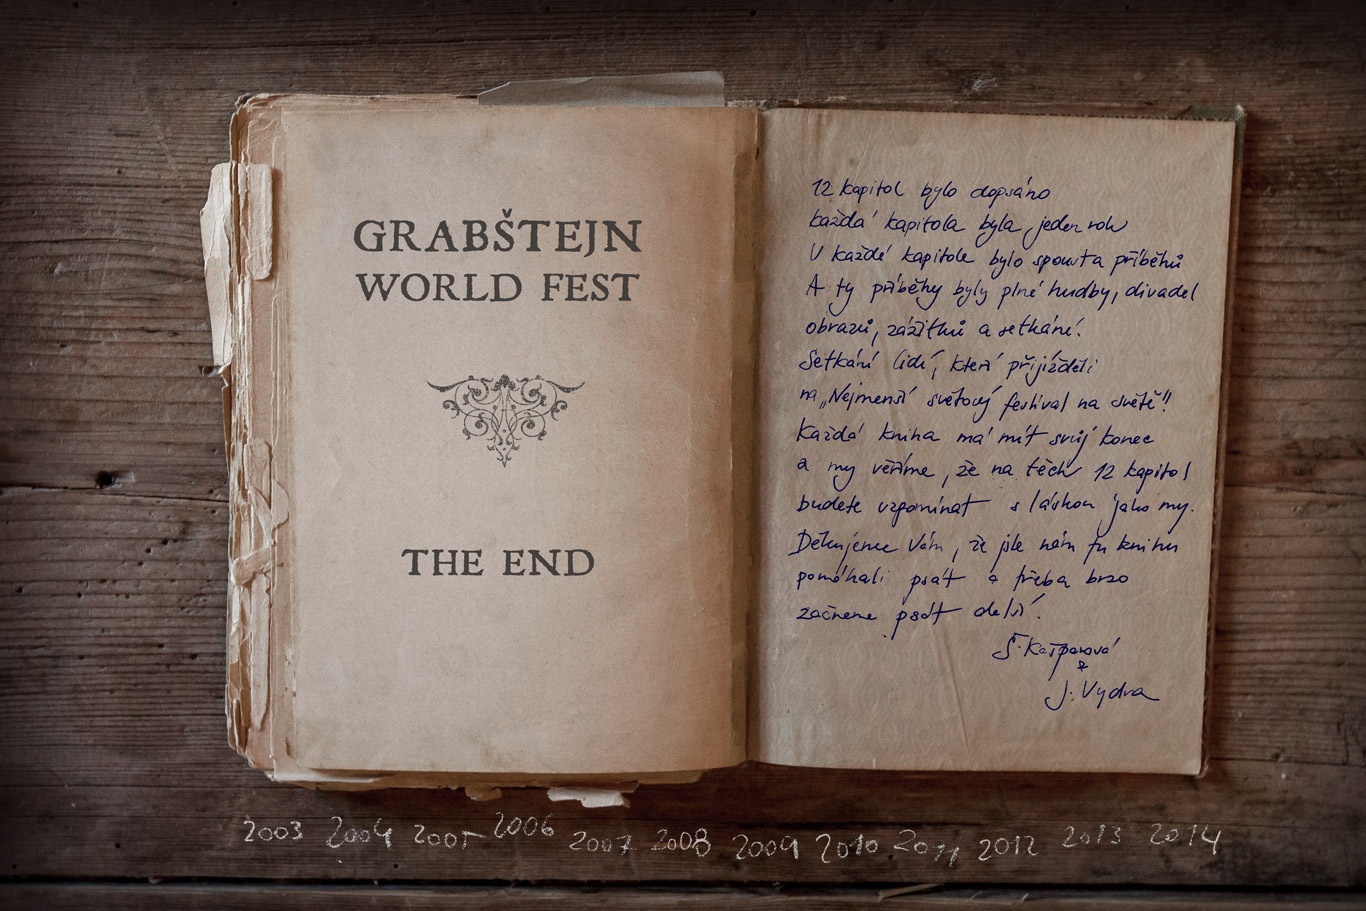 GRABŠTEJN
WORLD FEST
THE END
12 kapitol bylo dopsáno
každá kapitola byla jeden rok
V každé kapitole bylo spousta příběhů
A ty příběhy byly plné hudby, divadel
obrazů, zážitků a setkání.
Setkání lidí, kteří přijížděli
na „Nejmenší světový festival na světě"!
Každá kniha má mít svůj konec
a my věříme, že na těch 12 kapitol
budete vzpomínat s láskou jako my.
Děkujeme Vám, že jste nám tu knihu
pomáhali psát a třeba brzo
začneme psát další.
Š. Kašparová
&
J. Vydra
2003 2004 2005 2006 2007 2008 2009 2010 2011 2012 2013 2014